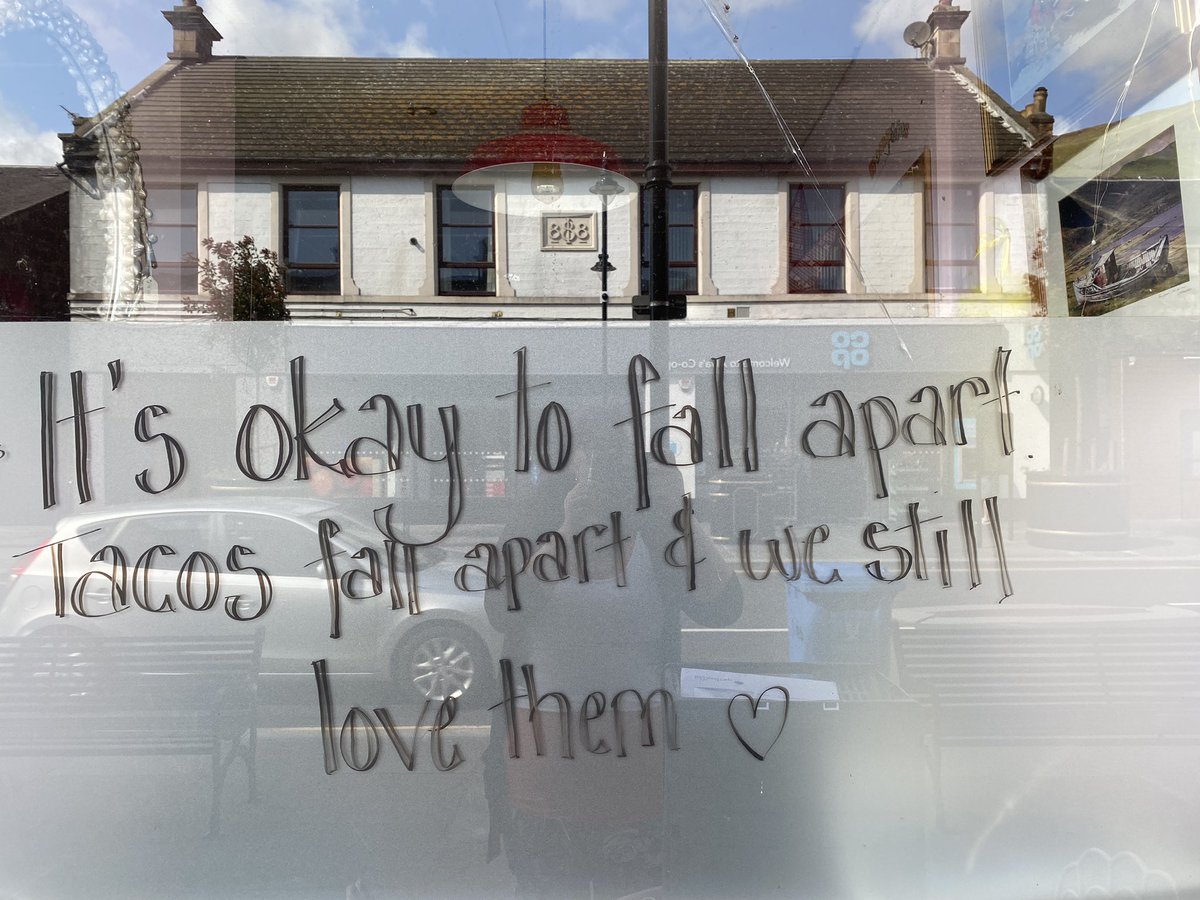 Welcome to Alva's Co-op
CO
OP
It's okay to fall apart.
Tacos fall apart & we still
love them ♡